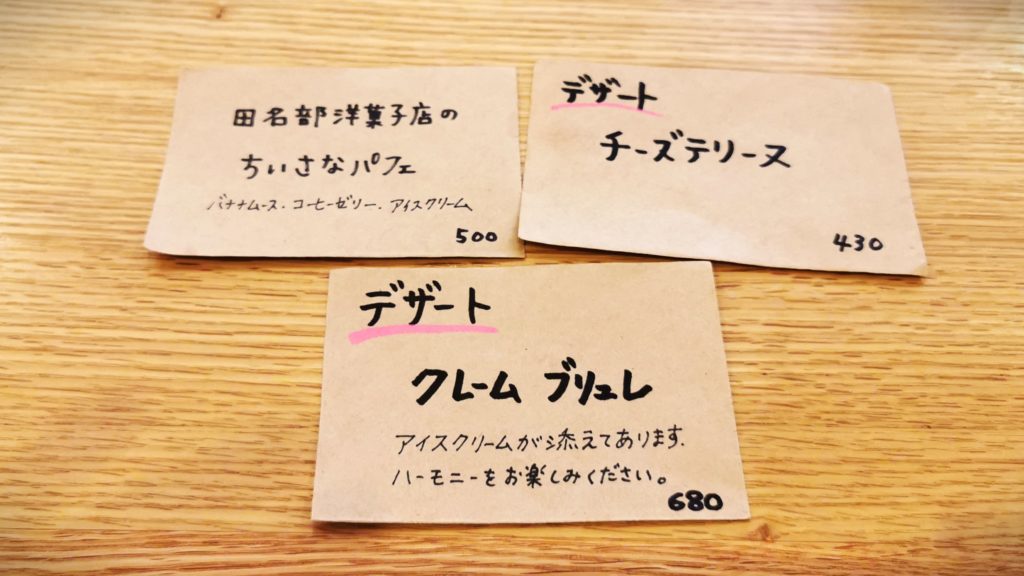 田名部洋菓子店の
ちいさなパフェ
バナナムース・コーヒーゼリー・アイスクリーム
500
デザート
チーズテリーヌ
430
デザート
クレーム ブリュレ
アイスクリームが添えてあります.
ハーモニーをお楽しみください。
680